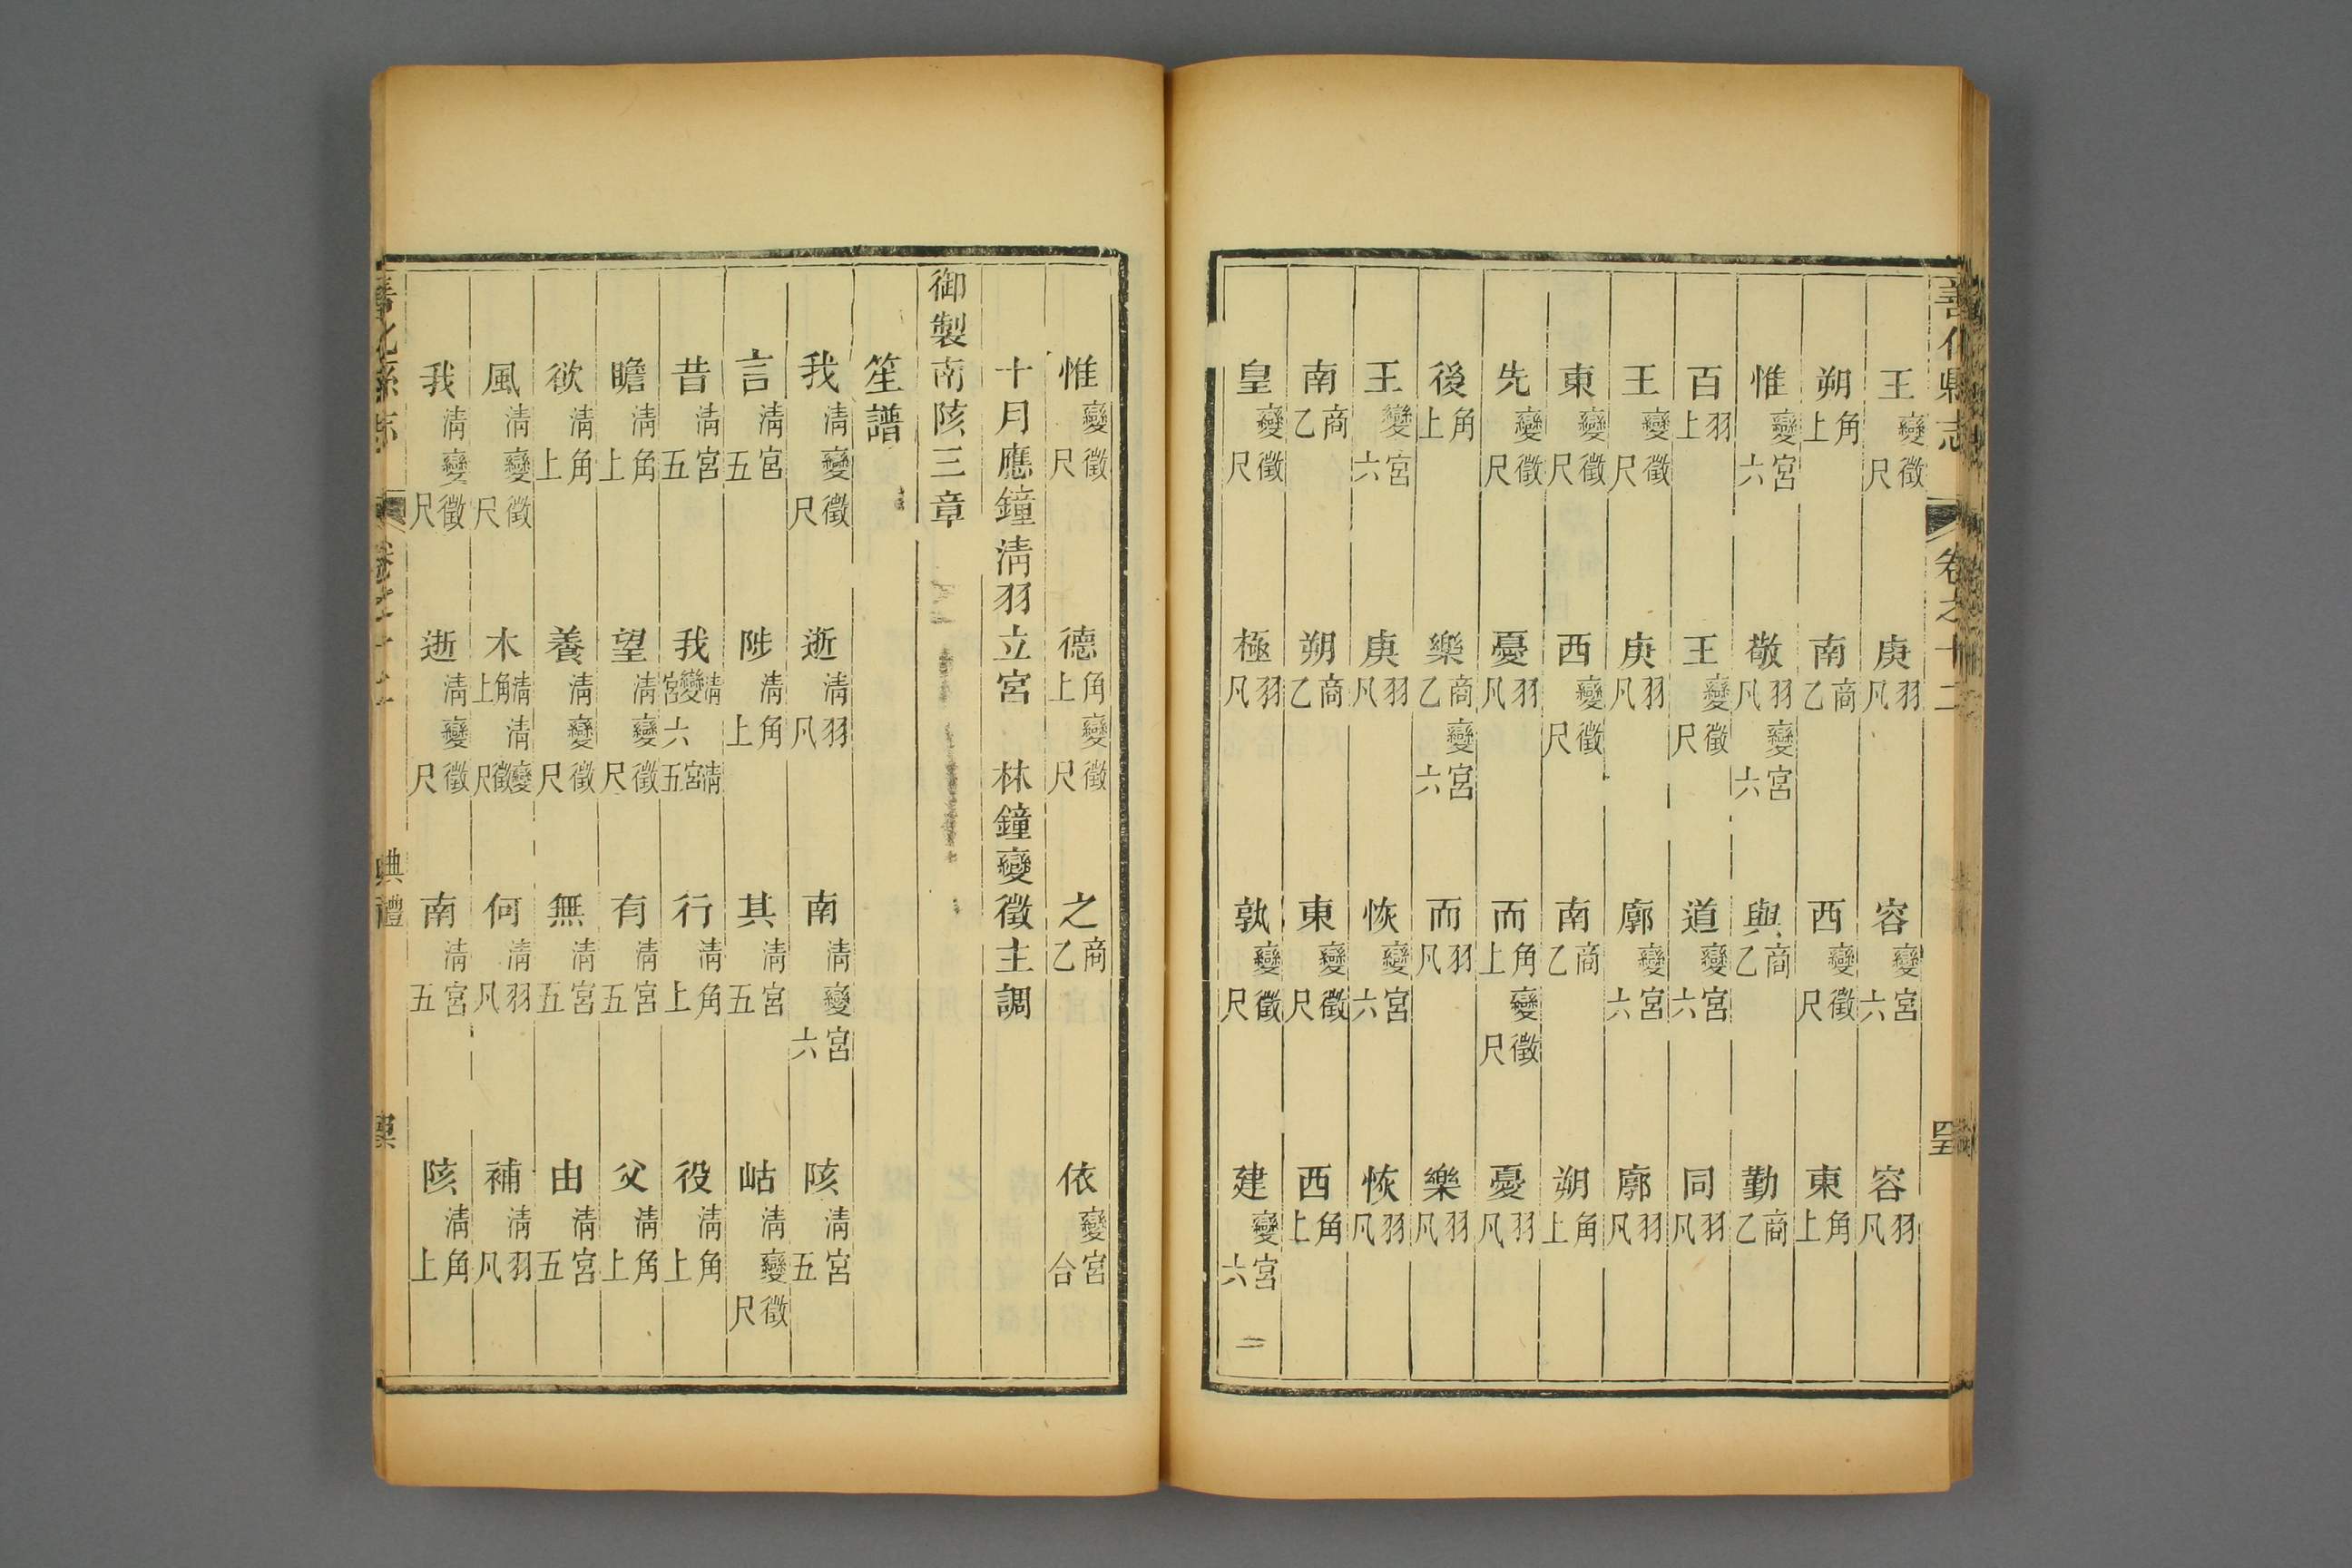 善化縣志 卷之十二 四五
王變徵尺 庚羽凡 容變宮六 容羽凡
朔角上 南商乙 西變徵尺 東角上
惟變宮六 敬羽凡變宮六 與商乙 勤商乙
百羽上 王變徵尺 道變宮六 同羽凡
王變徵尺 庚羽凡 廓變宮六 廓羽凡
東變徵尺 西變徵尺 南商乙 朔角上
先變徵尺 憂羽凡 而角上變徵尺 憂羽凡
後角上 樂商乙變宮六 而羽凡 樂羽凡
王變宮六 庚羽凡 恢變宮六 恢羽凡
南商乙 朔商乙 東變徵尺 西角上
皇變徵尺 極羽凡 孰變徵尺 建變宮六 二
惟變徵尺 德角上變徵尺 之商乙 依變宮合
十月應鐘淸羽立宮 林鐘變徵主調
御製南陔三章
笙譜
我淸變徵尺 逝淸羽凡 南淸變宮六 陔淸宮五
言淸宮五 陟淸角上 其淸宮五 岵淸變徵尺
昔淸宮五 我淸變宮六淸宮五 行淸角上 役淸角上
瞻淸角上 望淸變徵尺 有淸宮五 父淸角上
欲淸角上 養淸變徵尺 無淸宮五 由淸宮五
風淸變徵尺 木淸角上淸變徵尺 何淸羽凡 補淸羽凡
我淸變徵尺 逝淸變徵尺 南淸宮五 陔淸角上
善化縣志 卷之十二 典禮